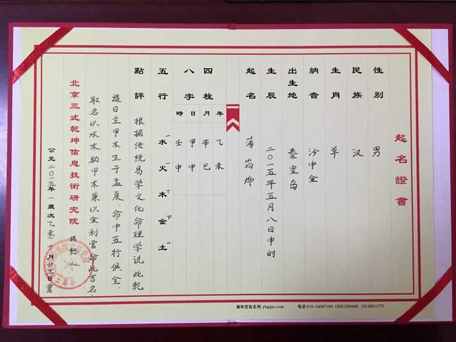 起名證書
性别 男
民族 漢
納音 沙中金
生肖 羊
出生地 秦皇岛
生辰 二〇一五年五月八日申时
起名 薄
四柱 年 月 日 時
八字 乙未 辛巳 甲申 壬申
五行 水 火 木 金 土
點評 根据传统易学文化命理学说此乾
造日主甲木生于孟夏,命中五行俱全,
取名以水木助甲木兼以金利官命此吉名
北京三式乾坤信息技術研究院
公元二〇一五年(歲次乙未)